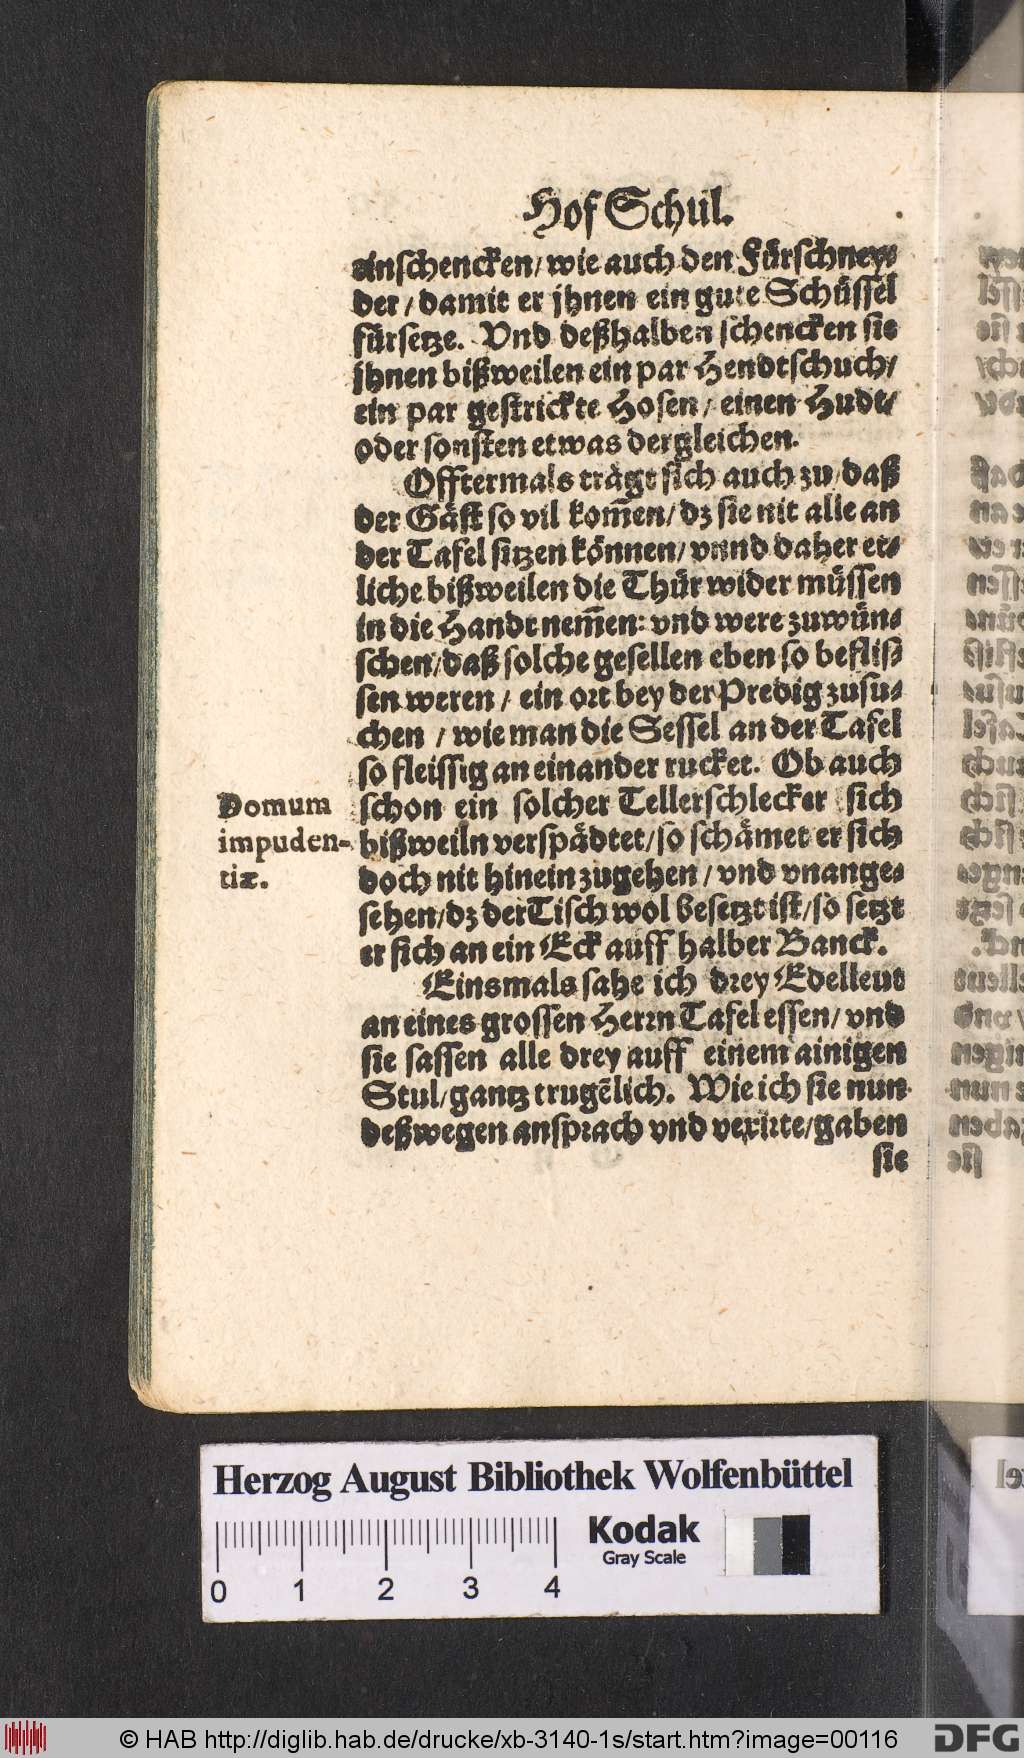 Hof Schul.
einschencken/ wie auch den Fürschney⸗
der/ damit er jhnen ein gute Schüssel
fürsetze. Vnd deßhalben schencken sie
jhnen bißweilen ein par Hendtschuch/
ein par gestrickte Hosen/ einen Hudt/
oder sonsten etwas dergleichen.
Offtermals trägt sich auch zu/ daß
der Gäst so vil kom̄en/ dz sie nit alle an
der Tafel sitzen können/ vnnd daher et⸗
liche bißweilen die Thür wider müssen
in die Handt nem̄en: vnd were zuwün⸗
schen/ daß solche gesellen eben so befliß⸗
sen weren/ ein ort bey der Predig zusu⸗
chen/ wie man die Sessel an der Tafel
so fleissig an einander rucket. Ob auch
schon ein solcher Tellerschlecker sich
bißweiln verspädtet/ so schämet er sich
doch nit hinein zugehen/ vnd vnange⸗
sehen/ dz der Tisch wol besetzt ist/ so setzt
er sich an ein Eck auff halber Banck.
Domum
impuden-
tiæ.
Einsmals sahe ich drey Edelleut
an eines grossen Herrn Tafel essen/ vnd
sie sassen alle drey auff einem ainigen
Stul/ gantz trugẽlich. Wie ich sie nun
deßwegen ansprach vnd vexirte/ gaben
sie
Herzog August Bibliothek Wolfenbüttel
Kodak
Gray Scale
0 1 2 3 4
© HAB http://diglib.hab.de/drucke/xb-3140-1s/start.htm?image=00116
DFG